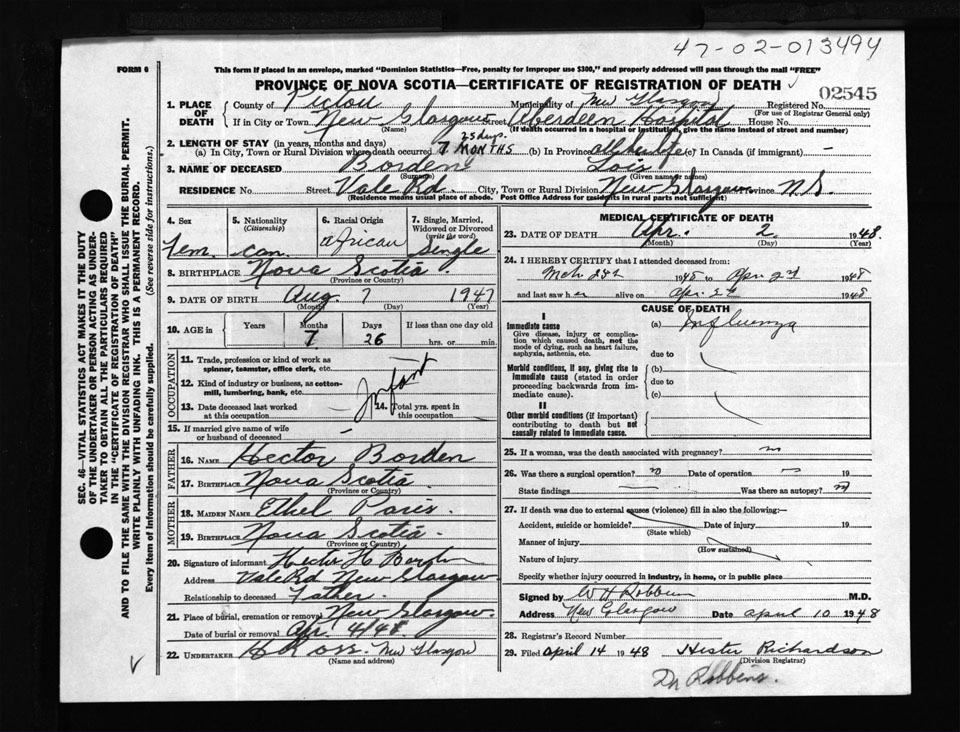 47-02-013494
FORM 6
This form if placed in an envelope, marked "Dominion Statistics—Free, penalty for improper use $300," and properly addressed will pass through the mail "FREE"
PROVINCE OF NOVA SCOTIA—CERTIFICATE OF REGISTRATION OF DEATH
02545
1. PLACE OF DEATH
County of Pictou Municipality of New Glasgow Registered No.
(For use of Registrar General only)
If in City or Town New Glasgow Street Aberdeen Hospital House No.
(Name) (If death occurred in a hospital or institution, give the name instead of street and number)
2. LENGTH OF STAY (in years, months and days) 25 days
(a) In City, Town or Rural Division where death occurred 7 MONTHS (b) In Province all her life (c) In Canada (if immigrant) —
3. NAME OF DECEASED Borden Lois
(Surname) (Given name or names)
RESIDENCE No Street Vale Rd. City, Town or Rural Division New Glasgow Province N.S.
(Residence means usual place of abode. Post Office Address for residents in rural parts not sufficient)
4. Sex
Fem
5. Nationality
(Citizenship)
can.
6. Racial Origin
african
7. Single, Married, Widowed or Divorced
(write the word)
Single
8. BIRTHPLACE Nova Scotia.
(Province or Country)
9. DATE OF BIRTH Aug 7 1947
(Month) (Day) (Year)
10. AGE in Years Months Days If less than one day old
7 26 hrs. or min.
OCCUPATION
11. Trade, profession or kind of work as spinner, teamster, office clerk, etc.
12. Kind of industry or business, as cotton-mill, lumbering, bank, etc.
Infant
13. Date deceased last worked at this occupation
14. Total yrs. spent in this occupation
15. If married give name of wife or husband of deceased —
FATHER
16. NAME Hector Borden
17. BIRTHPLACE Nova Scotia
(Province or Country)
MOTHER
18. MAIDEN NAME Ethel Paris.
19. BIRTHPLACE Nova Scotia.
(Province or Country)
20. Signature of informant Hector H Borden
Address Vale Rd New Glasgow
Relationship to deceased Father.
21. Place of burial, cremation or removal New Glasgow.
Date of burial or removal Apr. 4/48.
22. UNDERTAKER Ross New Glasgow
(Name and address)
MEDICAL CERTIFICATE OF DEATH
23. DATE OF DEATH Apr. 2 1948
(Month) (Day) (Year)
24. I HEREBY CERTIFY that I attended deceased from:
1948 to Apr 2nd 1948
and last saw her alive on Apr 2nd 1948
CAUSE OF DEATH
I
Immediate cause
Give disease, injury or complication which caused death, not the mode of dying, such as heart failure, asphyxia, asthenia, etc.
(a) Influenza
due to
Morbid conditions, if any, giving rise to immediate cause (stated in order proceeding backwards from immediate cause).
(b)
due to
(c)
II
Other morbid conditions (if important) contributing to death but not causally related to immediate cause.
25. If a woman, was the death associated with pregnancy? no
26. Was there a surgical operation? no Date of operation — 19
State findings Was there an autopsy? no
27. If death was due to external causes (violence) fill in also the following:—
Accident, suicide or homicide? Date of injury 19
(State which)
Manner of injury
(How sustained)
Nature of injury
Specify whether injury occurred in industry, in home, or in public place
Signed by W H Robbins M.D.
Address New Glasgow Date April 10 1948
28. Registrar's Record Number
29. Filed April 14 1948 Hester Richardson
(Division Registrar)
Dr Robbins.
SEC. 46—VITAL STATISTICS ACT MAKES IT THE DUTY OF THE UNDERTAKER OR PERSON ACTING AS UNDERTAKER TO OBTAIN ALL THE PARTICULARS REQUIRED IN THE "CERTIFICATE OF REGISTRATION OF DEATH" AND TO FILE THE SAME WITH THE DIVISION REGISTRAR WHO SHALL ISSUE THE BURIAL PERMIT.
WRITE PLAINLY WITH UNFADING INK. THIS IS A PERMANENT RECORD.
Every item of Information should be carefully supplied. (See reverse side for instructions.)